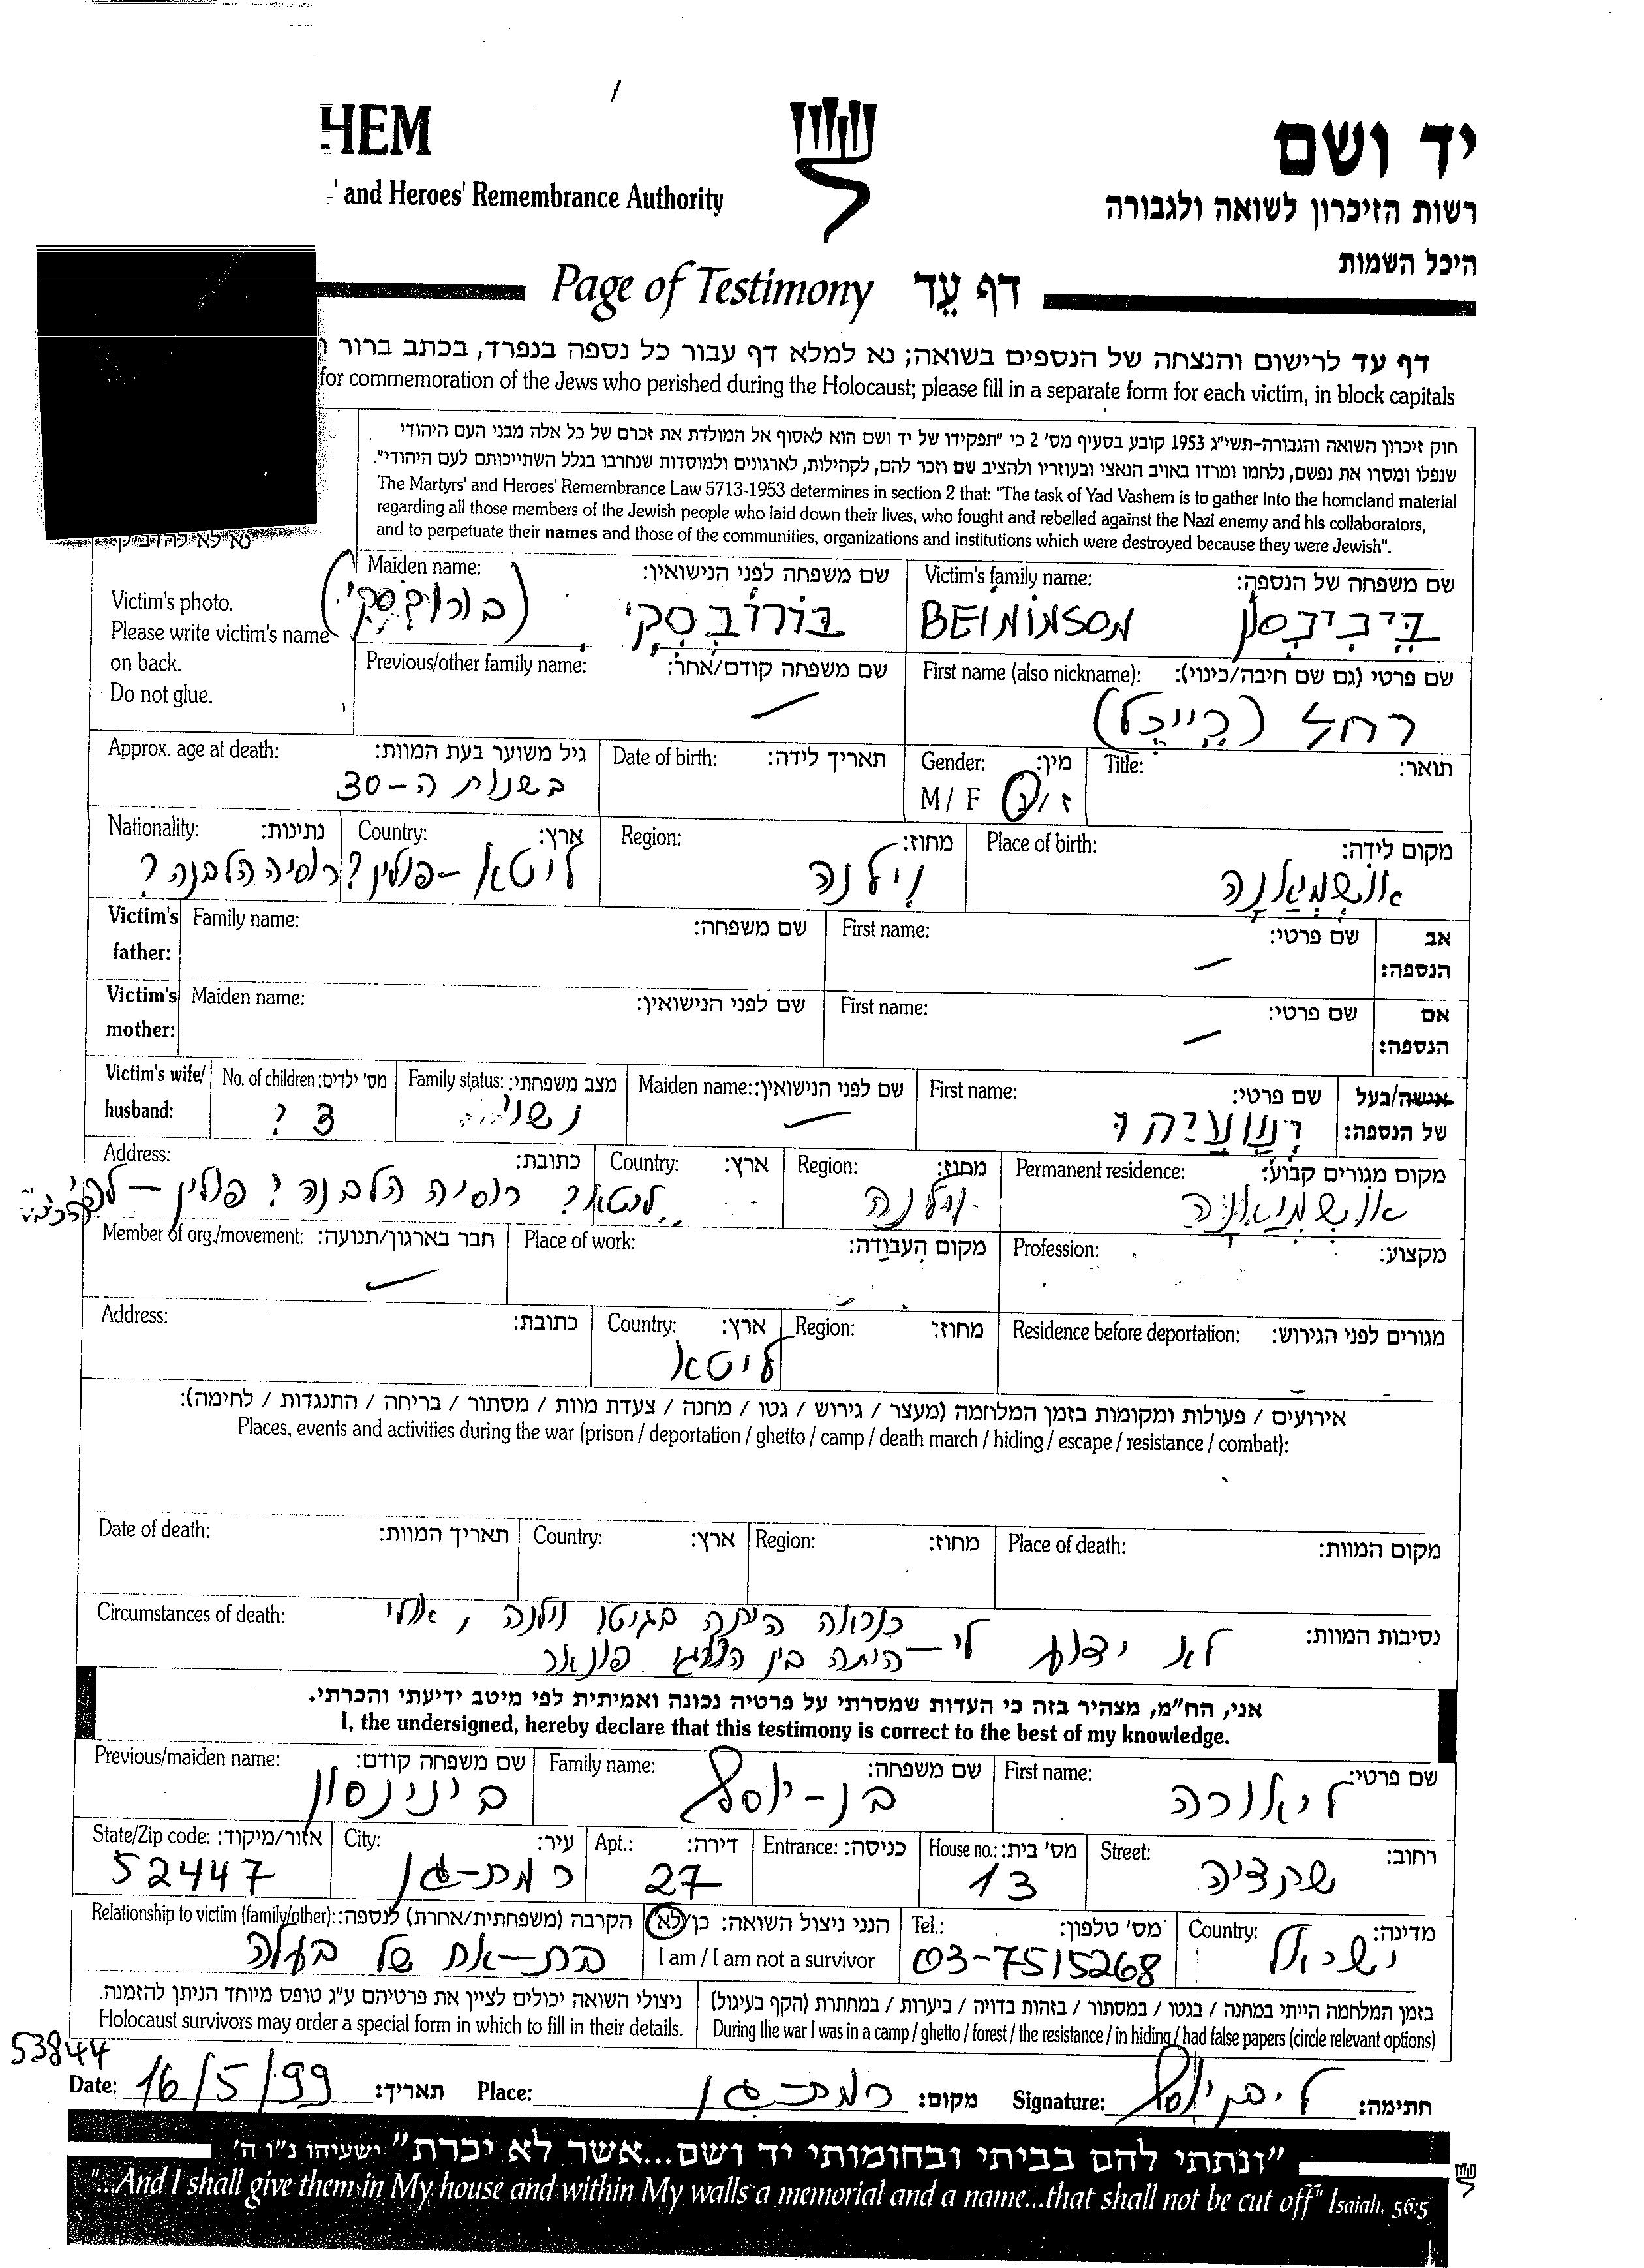 HEM
יד ושם
and Heroes' Remembrance Authority
רשות הזיכרון לשואה ולגבורה
היכל השמות
Page of Testimony דף עֵד
דף עד לרישום והנצחה של הנספים בשואה; נא למלא דף עבור כל נספה בנפרד, בכתב ברור ו
for commemoration of the Jews who perished during the Holocaust; please fill in a separate form for each victim, in block capitals
חוק זיכרון השואה והגבורה-תשי"ג 1953 קובע בסעיף מס' 2 כי "תפקידו של יד ושם הוא לאסוף אל המולדת את זכרם של כל אלה מבני העם היהודי
שנפלו ומסרו את נפשם, נלחמו ומרדו באויב הנאצי ובעוזריו ולהציב שם וזכר להם, לקהילות, לארגונים ולמוסדות שנחרבו בגלל השתייכותם לעם היהודי".
The Martyrs' and Heroes' Remembrance Law 5713-1953 determines in section 2 that: "The task of Yad Vashem is to gather into the homeland material
regarding all those members of the Jewish people who laid down their lives, who fought and rebelled against the Nazi enemy and his collaborators,
and to perpetuate their names and those of the communities, organizations and institutions which were destroyed because they were Jewish".
נא לא להדביק.
Victim's photo.
Please write victim's name
on back.
Do not glue.
שם משפחה של הנספה: Victim's family name:
BEININSON
שם משפחה לפני הנישואין: Maiden name:
בורובסקי (בורובסקי)
שם פרטי (גם שם חיבה/כינוי): First name (also nickname):
רחל
שם משפחה קודם/אחר: Previous/other family name:
תואר: Title:
מין: Gender:
ז/נ M / F
תאריך לידה: Date of birth:
גיל משוער בעת המוות: Approx. age at death:
בשנות ה-30
מקום לידה: Place of birth:
אושמיאנה
מחוז: Region:
וילנה
ארץ: Country:
ליטא-פולין?
נתינות: Nationality:
רוסיה הלבנה?
אב הנספה: Victim's father:
שם פרטי: First name:
שם משפחה: Family name:
אם הנספה: Victim's mother:
שם פרטי: First name:
שם לפני הנישואין: Maiden name:
אישה/בעל של הנספה: Victim's wife/ husband:
שם פרטי: First name:
שם לפני הנישואין: Maiden name:
מצב משפחתי: Family status:
מס' ילדים: No. of children:
3 ?
מקום מגורים קבוע: Permanent residence:
אושמיאנה
מחוז: Region:
וילנה
ארץ: Country:
כתובת: Address:
ליטא? רוסיה הלבנה? פולין - לפני
מקצוע: Profession:
מקום העבודה: Place of work:
חבר בארגון/תנועה: Member of org./movement:
מגורים לפני הגירוש: Residence before deportation:
מחוז: Region:
ארץ: Country:
ליטא
כתובת: Address:
אירועים / פעולות ומקומות בזמן המלחמה (מעצר / גירוש / גטו / מחנה / צעדת מוות / מסתור / בריחה / התנגדות / לחימה):
Places, events and activities during the war (prison / deportation / ghetto / camp / death march / hiding / escape / resistance / combat):
מקום המוות: Place of death:
מחוז: Region:
ארץ: Country:
תאריך המוות: Date of death:
נסיבות המוות: Circumstances of death:
לא ידוע לי - כנראה היתה בגיטו וילנה, אולי
היתה בין הרוגי פונאר
אני, הח"מ, מצהיר בזה כי העדות שמסרתי על פרטיה נכונה ואמיתית לפי מיטב ידיעתי והכרתי.
I, the undersigned, hereby declare that this testimony is correct to the best of my knowledge.
שם פרטי: First name:
ליאורה
שם משפחה: Family name:
בן-יוסף
שם משפחה קודם: Previous/maiden name:
בינינסון
רחוב: Street:
שקדיה
מס' בית: House no.:
13
כניסה: Entrance:
דירה: Apt.:
27
עיר: City:
רמת-גן
אזור/מיקוד: State/Zip code:
52447
מדינה: Country:
ישראל
מס' טלפון: Tel.:
03-7515268
הנני ניצול השואה: כן/לא
I am / I am not a survivor
הקרבה (משפחתית/אחרת) לנספה: Relationship to victim (family/other):
בת-אח של בעלה
בזמן המלחמה הייתי במחנה / בגטו / במסתור / בזהות בדויה / ביערות / במחתרת (הקף בעיגול)
During the war I was in a camp / ghetto / forest / the resistance / in hiding / had false papers (circle relevant options)
ניצולי השואה יכולים לציין את פרטיהם ע"ג טופס מיוחד הניתן להזמנה.
Holocaust survivors may order a special form in which to fill in their details.
53844
חתימה: Signature: ל. בן יוסף
מקום: רמת-גן Place:
תאריך: 16/5/99 Date:
"ונתתי להם בביתי ובחומותי יד ושם...אשר לא יכרת" ישעיהו נ"ו ה'
"...And I shall give them in My house and within My walls a memorial and a name...that shall not be cut off" Isaiah, 56:5